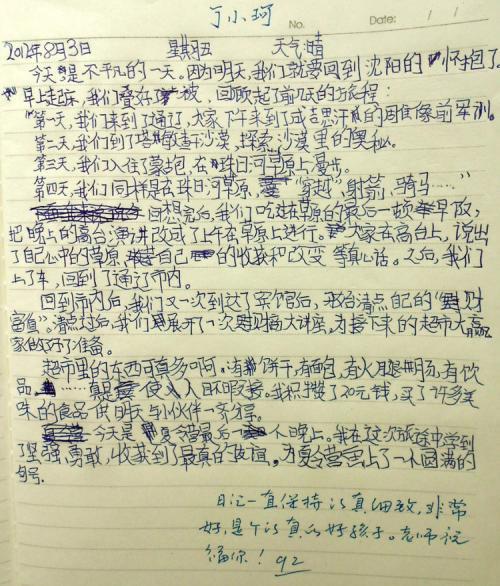 丁小珂
No.
Date: / /
2012年8月3日 星期五 天气:晴
今天是不平凡的一天。因为明天,我们就要回到沈阳的怀抱了。
早上起床,我们叠好被,回顾起了前几天的旅程:
“第一天,我们来到了通辽,大家下午来到了成吉思汗的周围像前军训。
第二天,我们到了塔敏查干沙漠,探索沙漠里的奥秘。
第三天,我们入住了蒙古包,在珠日河草原上漫步。
第四天,我们同样是在珠日河草原,“穿越”射箭,骑马……”
回想完后,我们吃过在草原的最后一顿早饭,
把晚上的高台演讲改成了上午在草原上进行。大家在高台上,说出
了自己心中的草原,自己的收获和改变等真心话。之后,我们
上了车,回到了通辽市内。
回到市内后,我们又一次到达了宾馆后,清点自己的“财
富值”。清点过后,我们展开了一次财商大讲座,为接下来的超市大赢
家做好了准备。
超市里的东西可真多啊,有饼干,有面包,有火腿肠,有饮
品……真是使人目不暇接。我只花了20元钱,买了许多美
味的食品供明天与小伙伴一齐分享。
今天是夏令营最后一个晚上。我在这次旅途中学到
了坚强、勇敢,收获到了最真的友谊。为夏令营画上了一个圆满的
句号。
日记一直保持认真细致,非常
好,是个认真的好孩子。老师祝
福你! 92